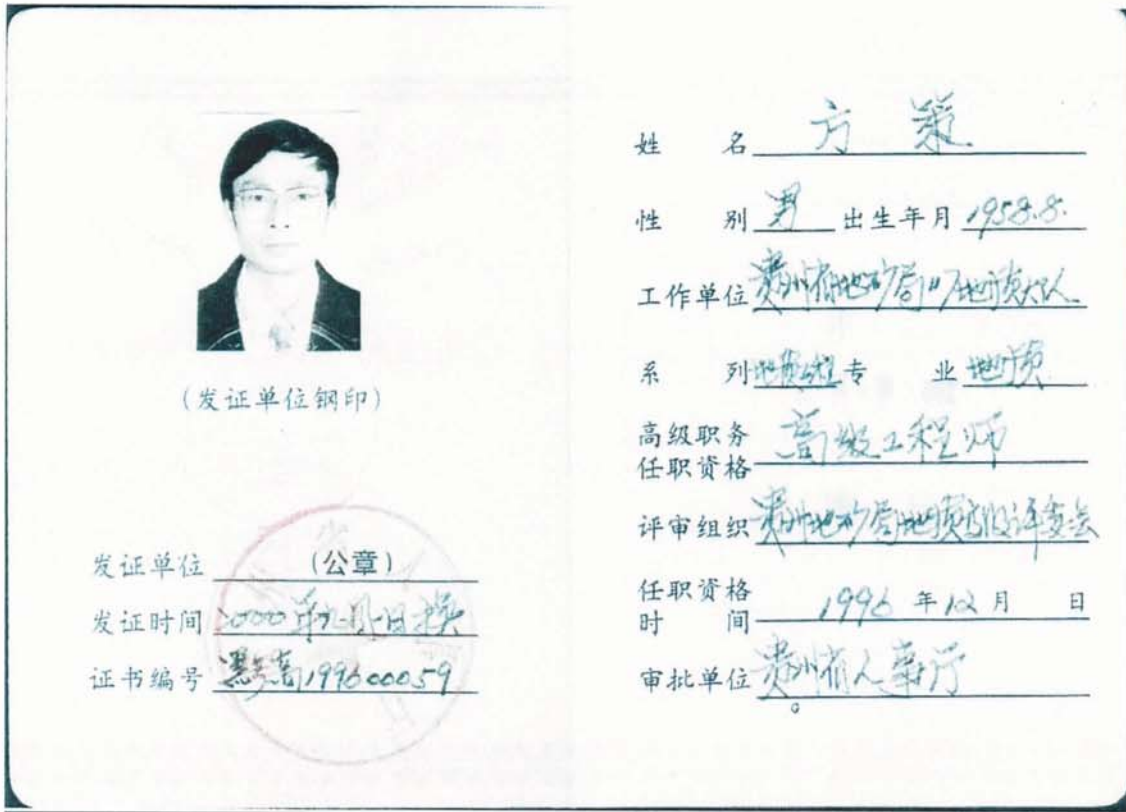 (发证单位钢印)
发证单位 (公章)
发证时间 2000年九月 日换
证书编号 高199600059
姓 名 方策
性 别 男 出生年月 1958.8.
工作单位 贵州省地矿局117地质大队
系 列 地质工程 专 业 地质
高级职务
任职资格 高级工程师
评审组织 贵州地矿局地质高级评委会
任职资格
时 间 1996 年 12 月 日
审批单位 贵州省人事厅